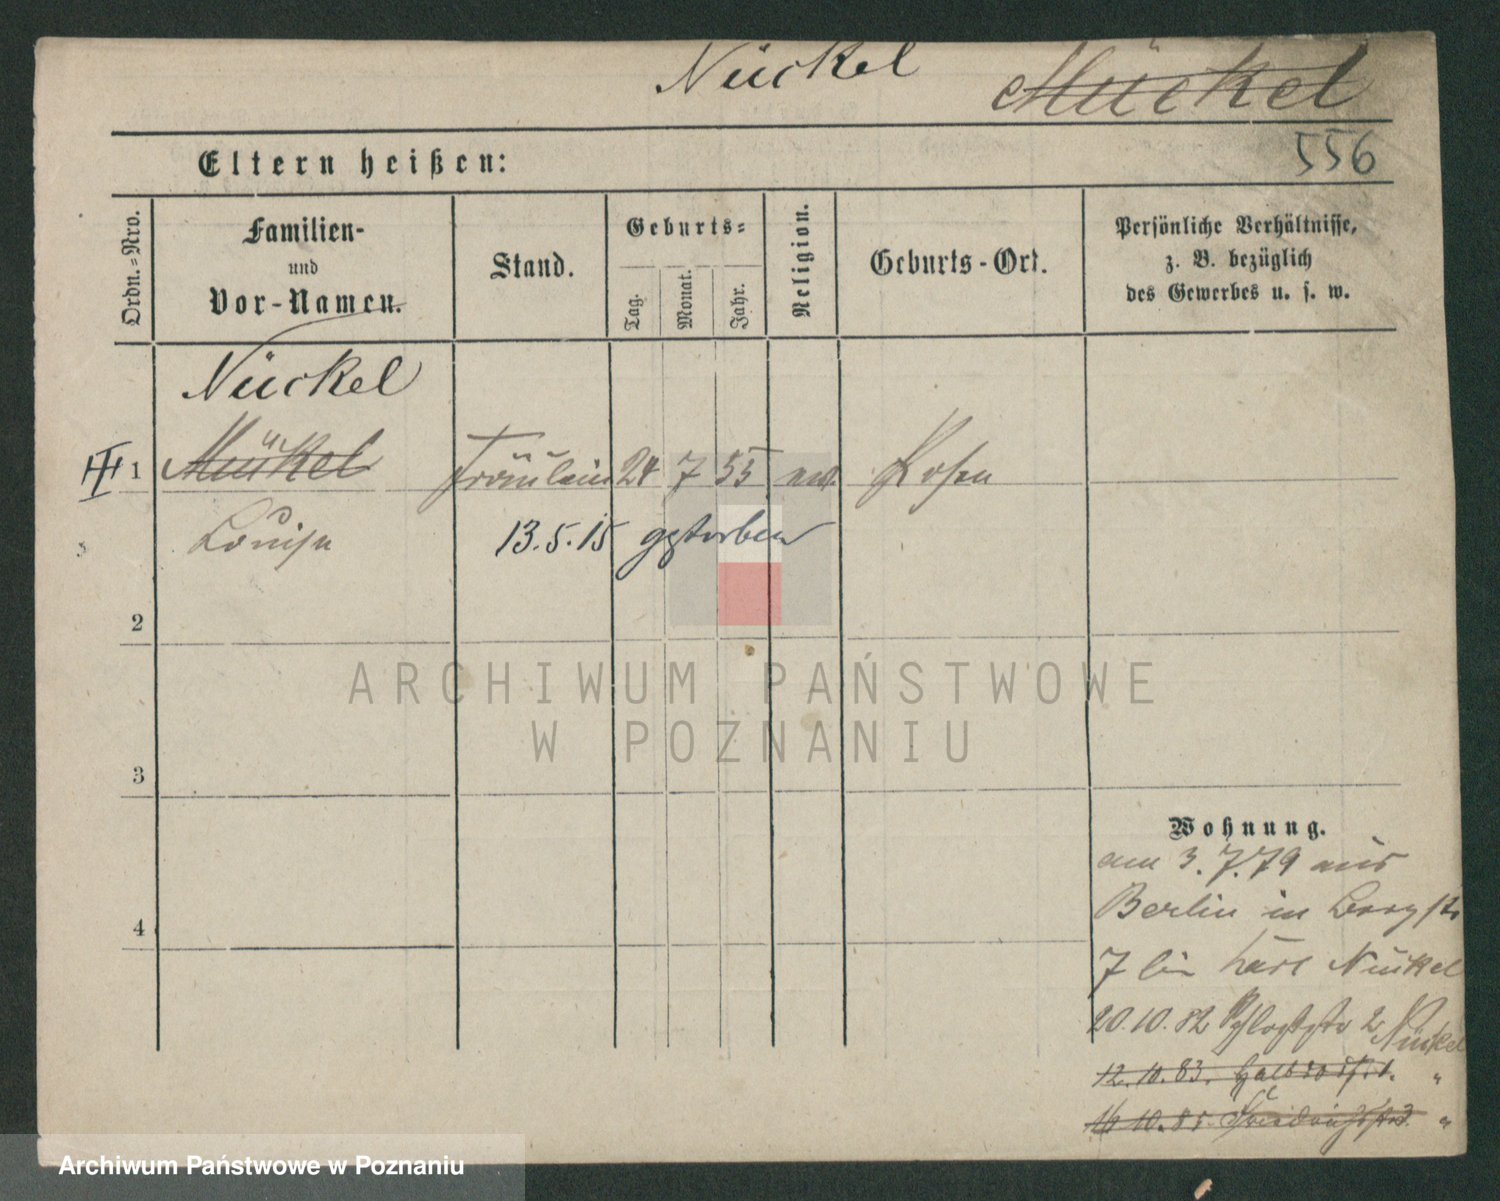 Nückel Mückel
556
Eltern heißen:
Ordn.-Nro.
Familien-
und
Vor-Namen.
Stand.
Geburts-
Tag.
Monat.
Jahr.
Religion.
Geburts-Ort.
Persönliche Verhältnisse,
z. B. bezüglich
des Gewerbes u. s. w.
Nückel
III 1 Mükel Fräulein 24 7 55 ev. Posen
Louise 13.5.15 gestorben
2
ARCHIWUM PAŃSTWOWE
W POZNANIU
3
Wohnung.
am 3.7.79 aus
Berlin in Bergstr
4
7 bei Karl Nükel
20.10.82 Schloßstr 2 Nükel
12.10.83. Halbdorfstr. "
16.10.85. Friedrichstr 3. "
Archiwum Państwowe w Poznaniu